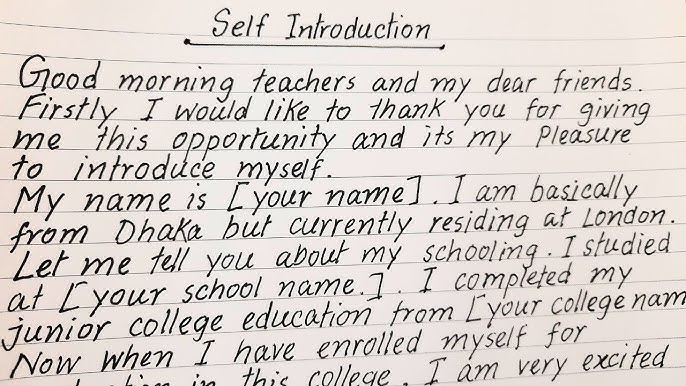 Self Introduction
Good morning teachers and my dear friends.
Firstly I would like to thank you for giving
me this opportunity and its my Pleasure
to introduce myself.
My name is [your name]. I am basically
from Dhaka but currently residing at London.
Let me tell you about my schooling. I studied
at [your school name.]. I completed my
junior college education from [your college nam
Now when I have enrolled myself for
in this college. I am very excited